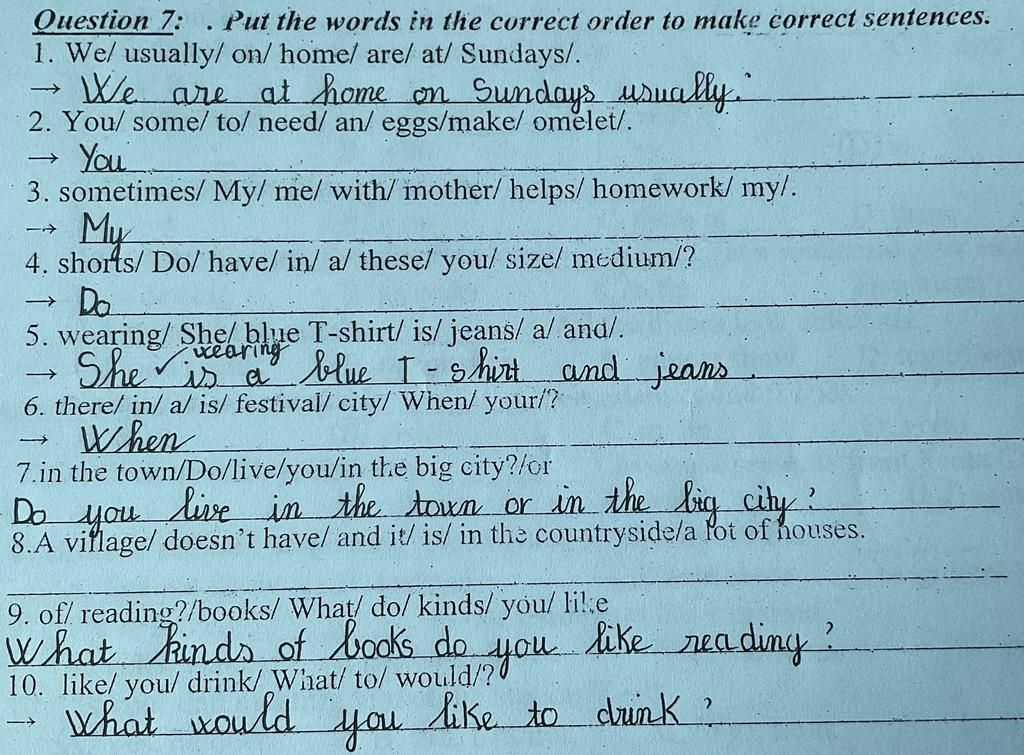 Question 7: . Put the words in the correct order to make correct sentences.
1. We/ usually/ on/ home/ are/ at/ Sundays/.
→ We are at home on Sundays usually.
2. You/ some/ to/ need/ an/ eggs/make/ omelet/.
→ You
3. sometimes/ My/ me/ with/ mother/ helps/ homework/ my/.
→ My
4. shorts/ Do/ have/ in/ a/ these/ you/ size/ medium/?
→ Do
5. wearing/ She/ blue T-shirt/ is/ jeans/ a/ and/.
wearing
→ She ✓ is a blue T-shirt and jeans.
6. there/ in/ a/ is/ festival/ city/ When/ your/?
→ When
7.in the town/Do/live/you/in the big city?/or
Do you live in the town or in the big city?
8.A village/ doesn't have/ and it/ is/ in the countryside/a lot of houses.
9. of/ reading?/books/ What/ do/ kinds/ you/ like
What kinds of books do you like reading?
10. like/ you/ drink/ What/ to/ would/?
→ What would you like to drink?